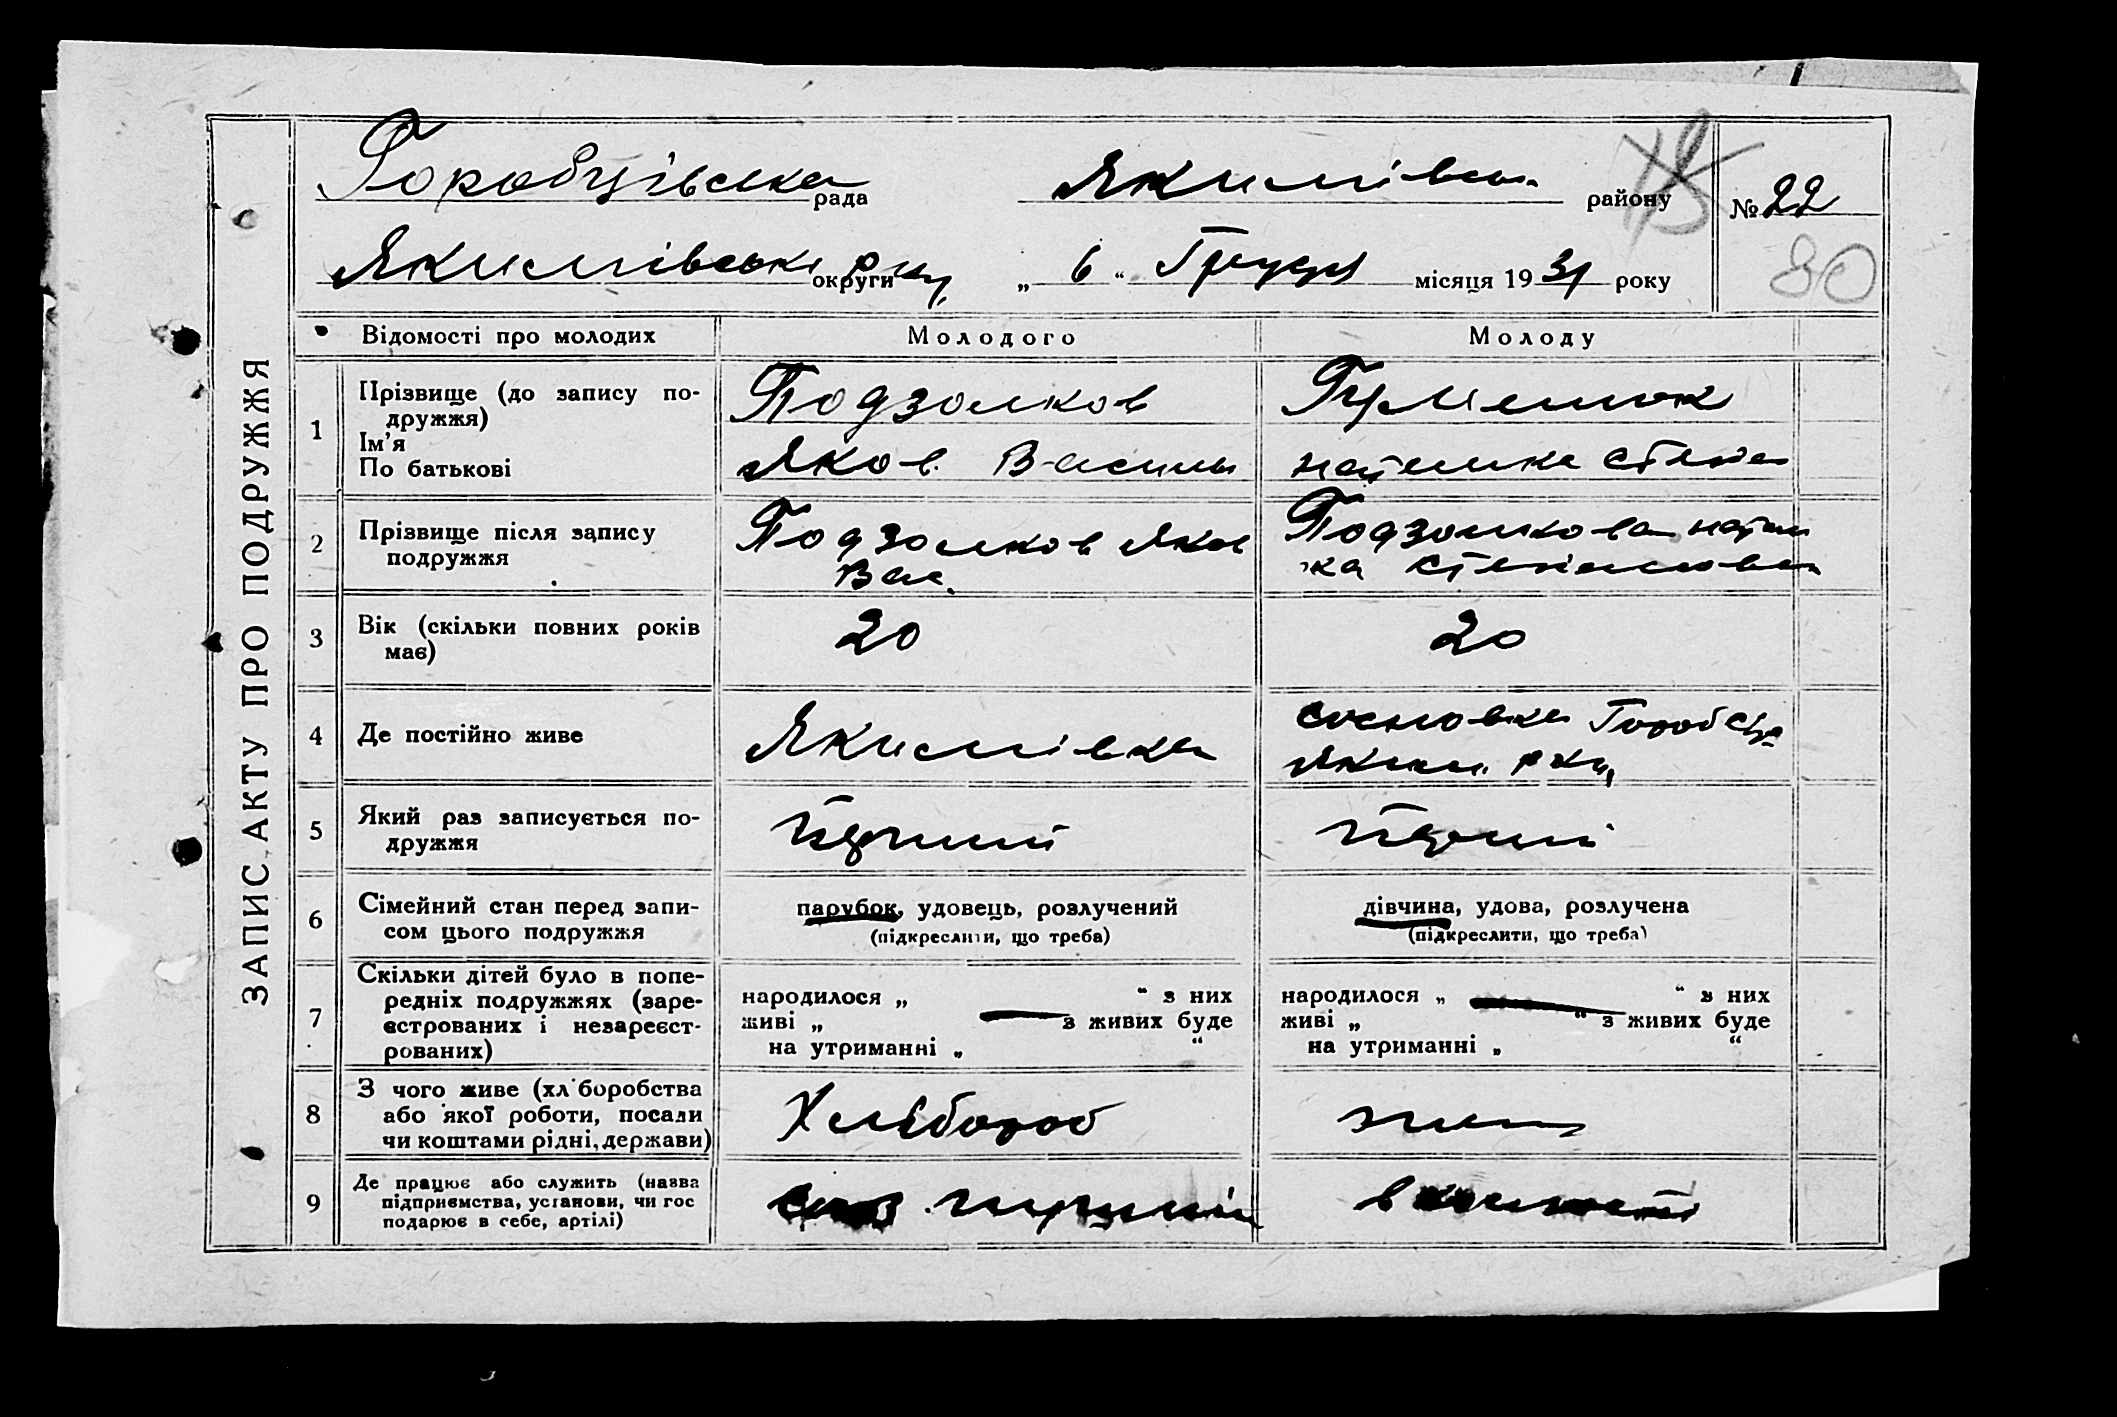 ЗАПИС АКТУ ПРО ПОДРУЖЖЯ
Горобцівська рада Якимівськ. району № 22
Якимівська округи „ 6 “ Грудня місяця 19 31 року 80
Відомості про молодих Молодого Молоду
1 Прізвище (до запису по-
дружжя)
Ім'я
По батькові
Подзолков
Яков Василь
2 Прізвище після запису
подружжя
Подзолков Яков
Вас.
Подзолкова
3 Вік (скільки повних років
має)
20
20
4 Де постійно живе
Якимівка
Сосновка Гороб
Яким.
5 Який раз записується по-
дружжя
Перший
Перший
6 Сімейний стан перед запи-
сом цього подружжя
парубок, удовець, розлучений
(підкреслити, що треба)
дівчина, удова, розлучена
(підкреслити, що треба)
7 Скільки дітей було в попе-
редніх подружжях (заре-
єстрованих і незареєст-
рованих)
народилося „ “ з них
живі „ з живих буде
на утриманні „ “
народилося „ “ з них
живі „ “ з живих буде
на утриманні „ “
8 З чого живе (хліборобства
або якої роботи, посади
чи коштами рідні, держави)
Хлібороб
9 Де працює або служить (назва
підприємства, установи, чи гос
подарює в себе, артілі)